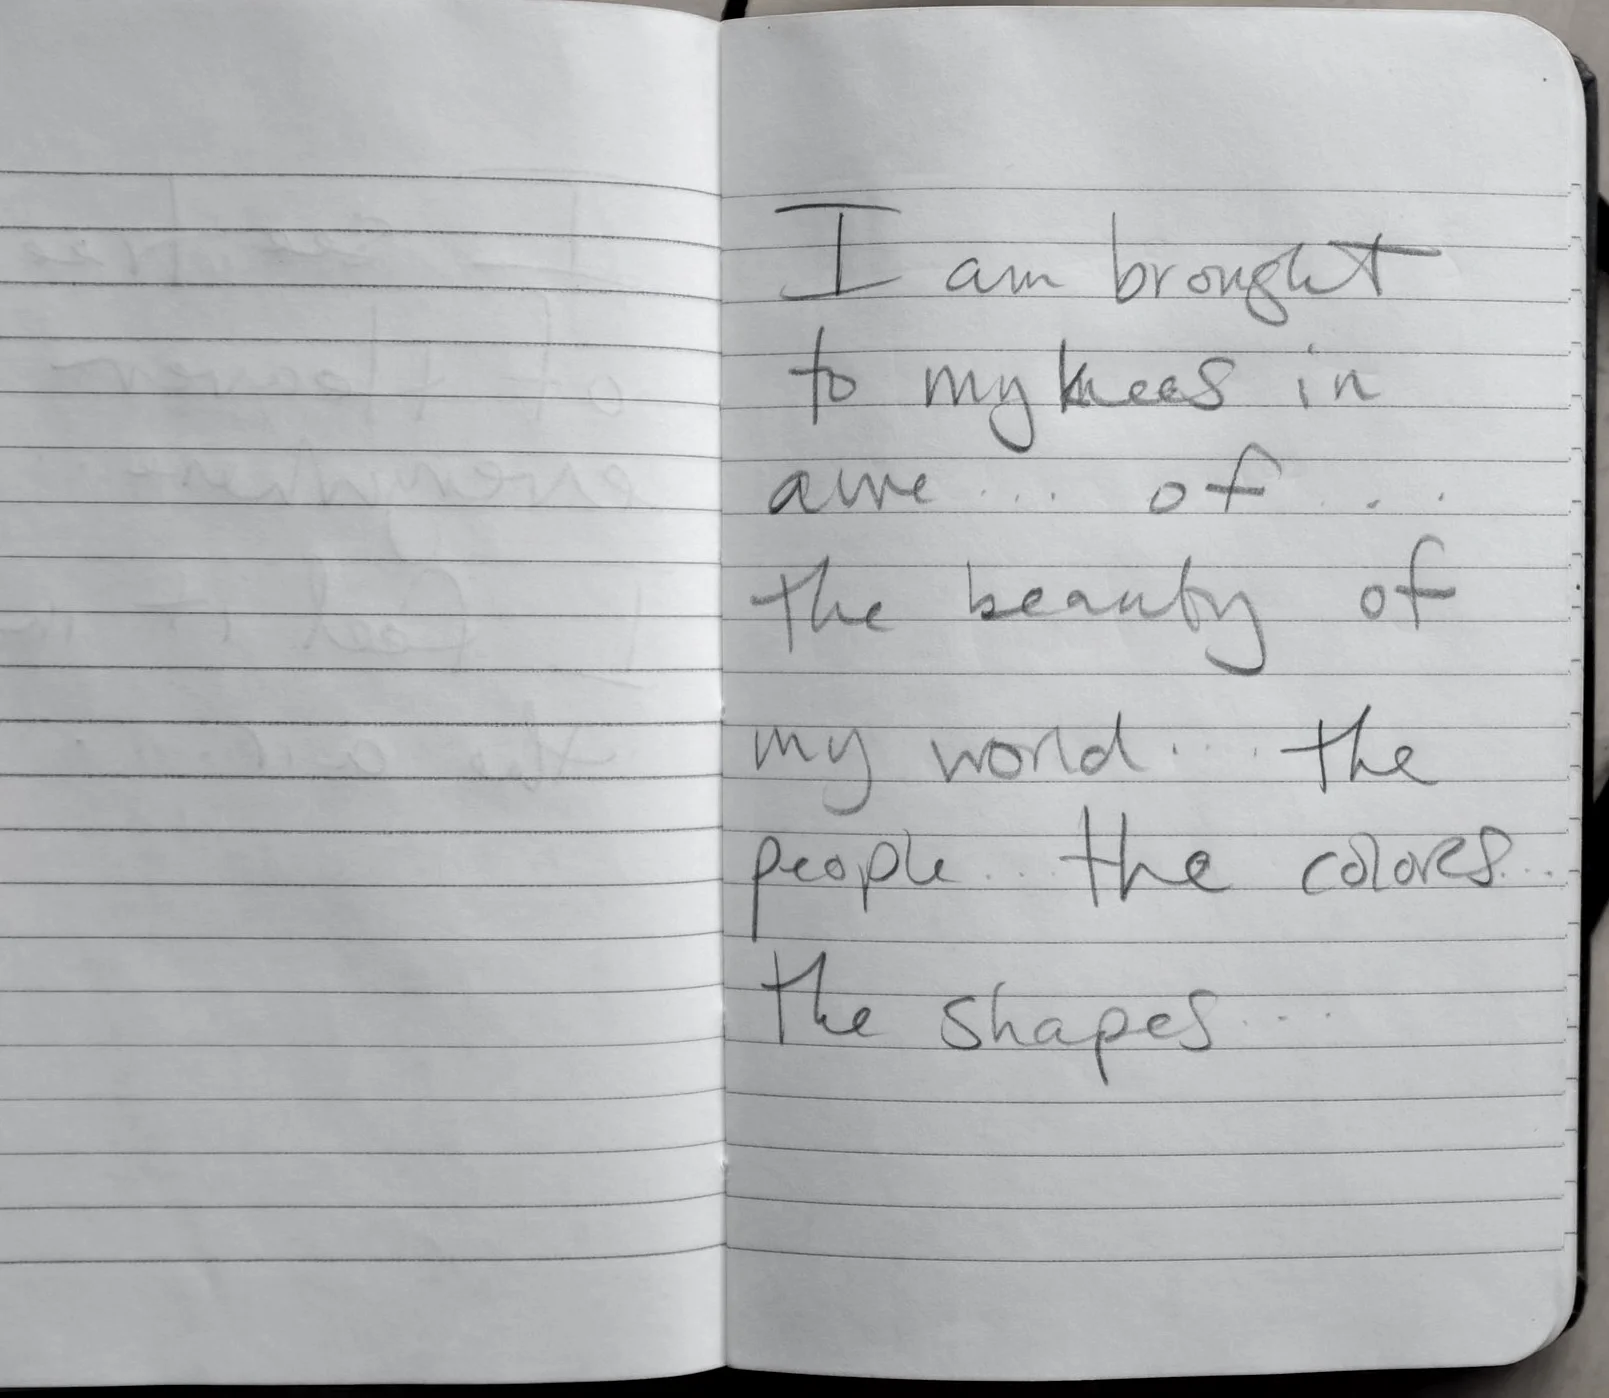 I am brought
to my knees in
awe...... of...
the beauty of
my world.... the
people.... the colors...
the shapes....